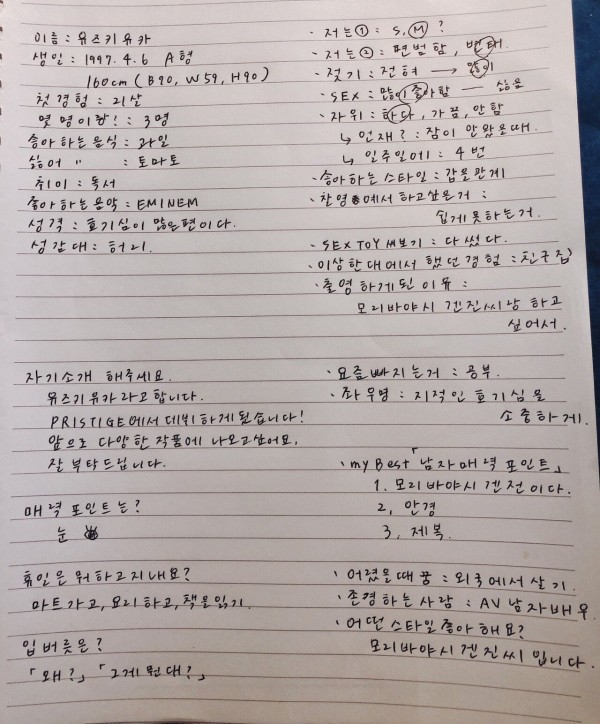 이름 : 유즈키유카
생일 : 1997. 4. 6 A형
160cm ( B90, W59, H90 )
첫경험 : 21살
몇명이랑! : 3명
승아하는음식 : 과일
싫어 〃 : 토마토
취미 : 독서
좋아하는음악 : EMINEM
성격 : 호기심이 많은편이다.
성감대 : 허리
자기소개 해주세요.
유즈키유카라고합니다.
PRISTIGE에서 데뷔하게됬습니다!
앞으로 다양한 작품에 나오고싶어요.
잘 부탁드립니다.
매력포인트는?
눈
휴일은 뭐하고지내요?
마트가고, 요리하고, 책을읽기.
입버릇은?
「왜?」「그게뭔대?」
· 저는① : S, M ?
· 저는② : 평범함, 변태.
· 젖기 : 전혀 → 많이
· SEX : 많이좋아함 — 싫음
· 자위 : 하다, 가끔, 안함
↳ 언재? : 잠이 안왔을때.
↳ 일주일에 : 4번
· 승아하는스타일 : 갑을관계
· 찬영에서하고싶은거 :
쉽게못하는거.
· SEX TOY써보기 : 다썼다.
· 이상한대에서 했던경험 : 친구집
· 촬영하게된이유 :
모리바야시 겐진씨랑 하고
싶어서.
· 요즘빠지는거 : 공부.
· 좌우명 : 지적인 호기심을
소중하게.
· my Best 「남자매력포인트」
1. 모리바야시겐전이다.
2, 안경
3, 제복.
· 어렸을때꿈 : 외국에서살기.
· 존경하는사람 : AV남자배우.
· 어떤스타일좋아해요?
모리바야시겐진씨입니다.